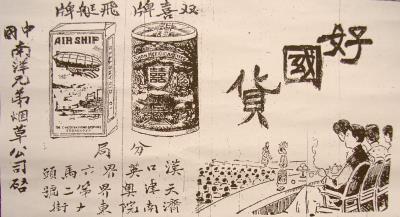 双喜牌
飛艇牌
好國貨
AIR SHIP
分局
漢口英界六馬頭
天津奧界第二號
濟南院東大街
中國南洋兄弟烟草公司啓